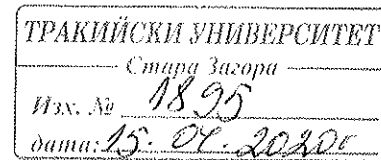 ТРАКИЙСКИ УНИВЕРСИТЕТ
Стара Загора
Изх. № 1895
дата: 15. 04. 2020г